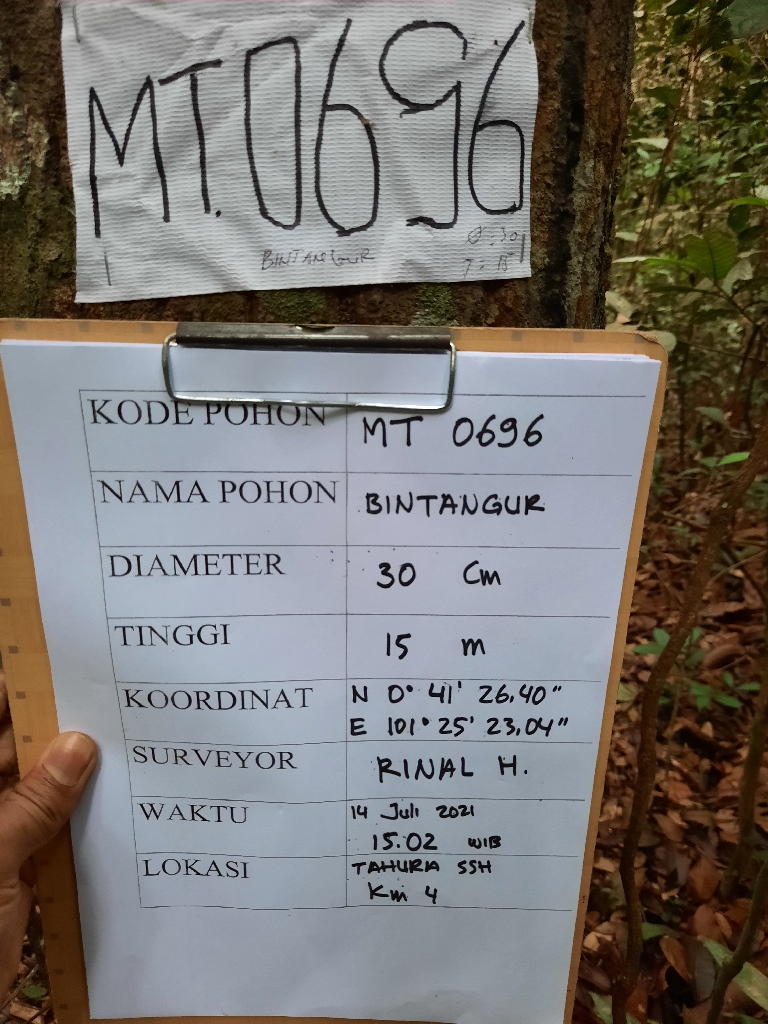 MT.0696
BINTANGUR
Ø : 30
T : 15
KODE POHON MT 0696
NAMA POHON BINTANGUR
DIAMETER 30 Cm
TINGGI 15 m
KOORDINAT N 0° 41' 26.40"
E 101° 25' 23.04"
SURVEYOR RINAL H.
WAKTU 14 Juli 2021
15.02 WIB
LOKASI TAHURA SSH
Km 4